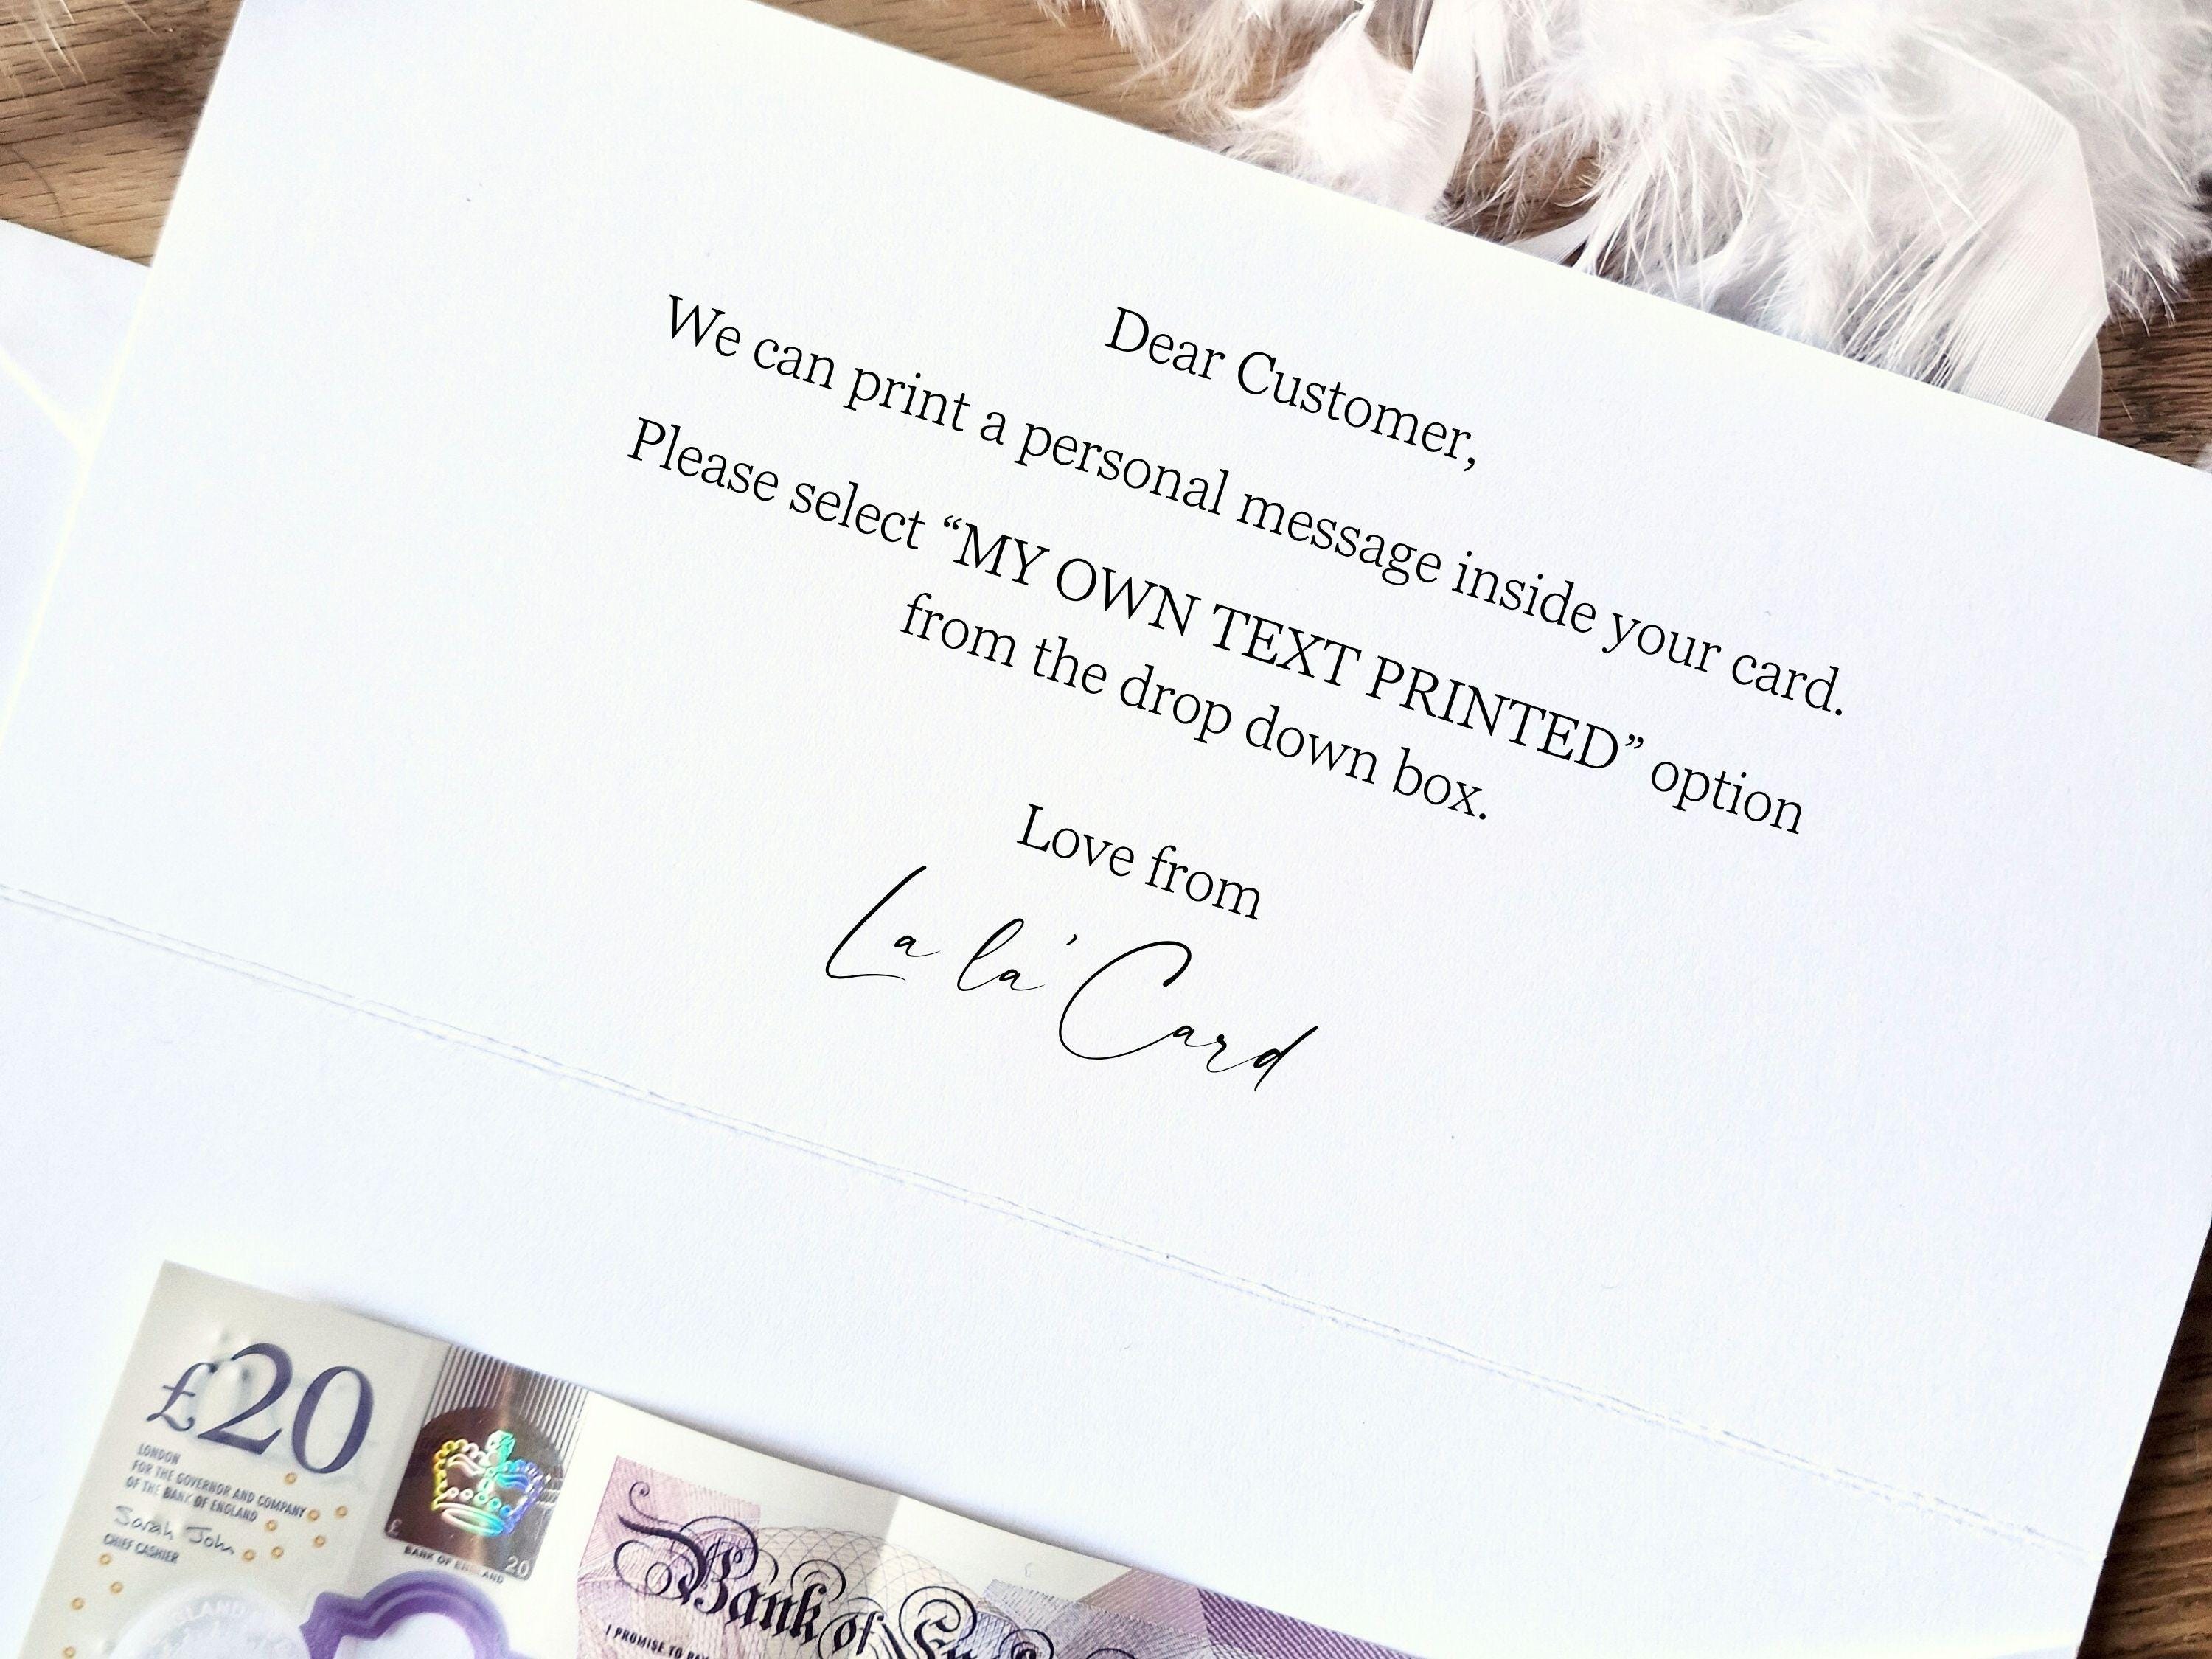 Dear Customer,
We can print a personal message inside your card.
Please select “MY OWN TEXT PRINTED” option
from the drop down box.
Love from
La la' Card
£20
LONDON
FOR THE GOVERNOR AND COMPANY
OF THE BANK OF ENGLAND
Sarah John
CHIEF CASHIER
£
20
BANK OF ENGLAND
Bank of
I PROMISE TO PAY